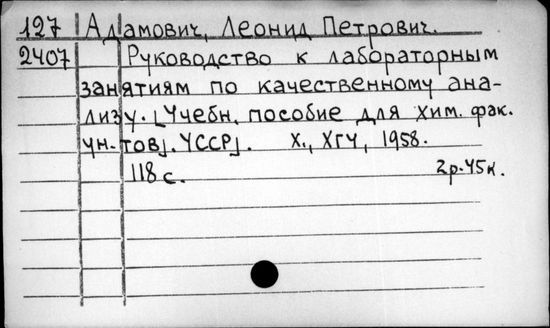 127 Адамович, Леонид Петрович.
2407 Руководство к лабораторным
занятиям по качественному ана-
лизу. [Учебн. пособие для хим. фак.
ун-тов]. УССР]. Х., ХГУ, 1958.
118 с. 2р.45к.